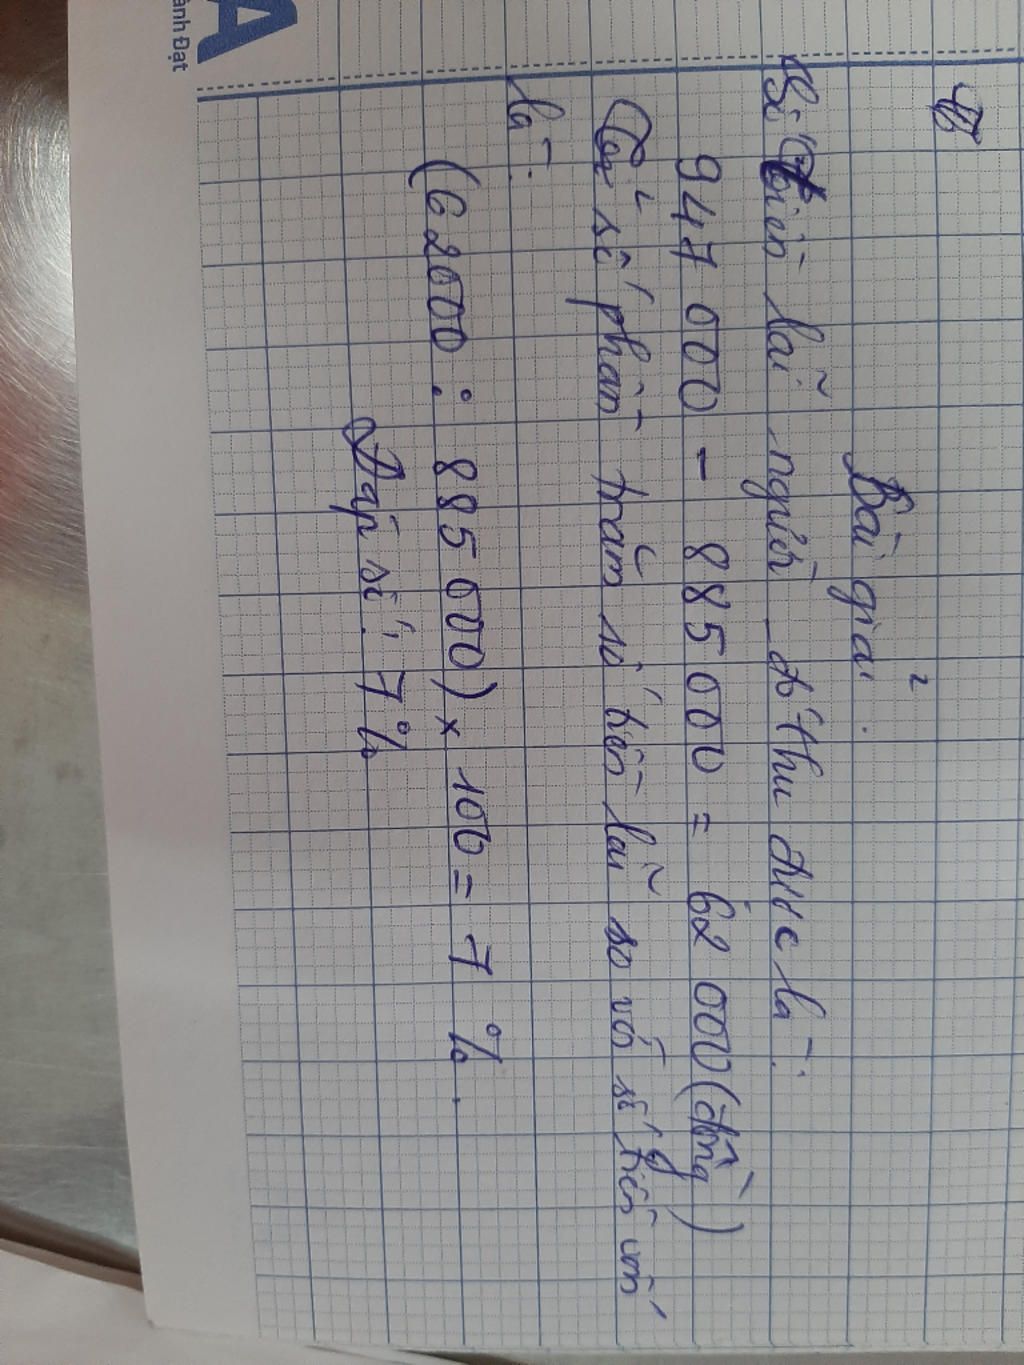 A
ành Đạt
Bài giải:
Số tiền lãi người đó thu được là:
947 000 - 885 000 = 62 000 (đồng)
Tỉ số phần trăm số tiền lãi so với số tiền vốn
là:
(62000 : 885 000) x 100 = 7 %.
Đáp số: 7%